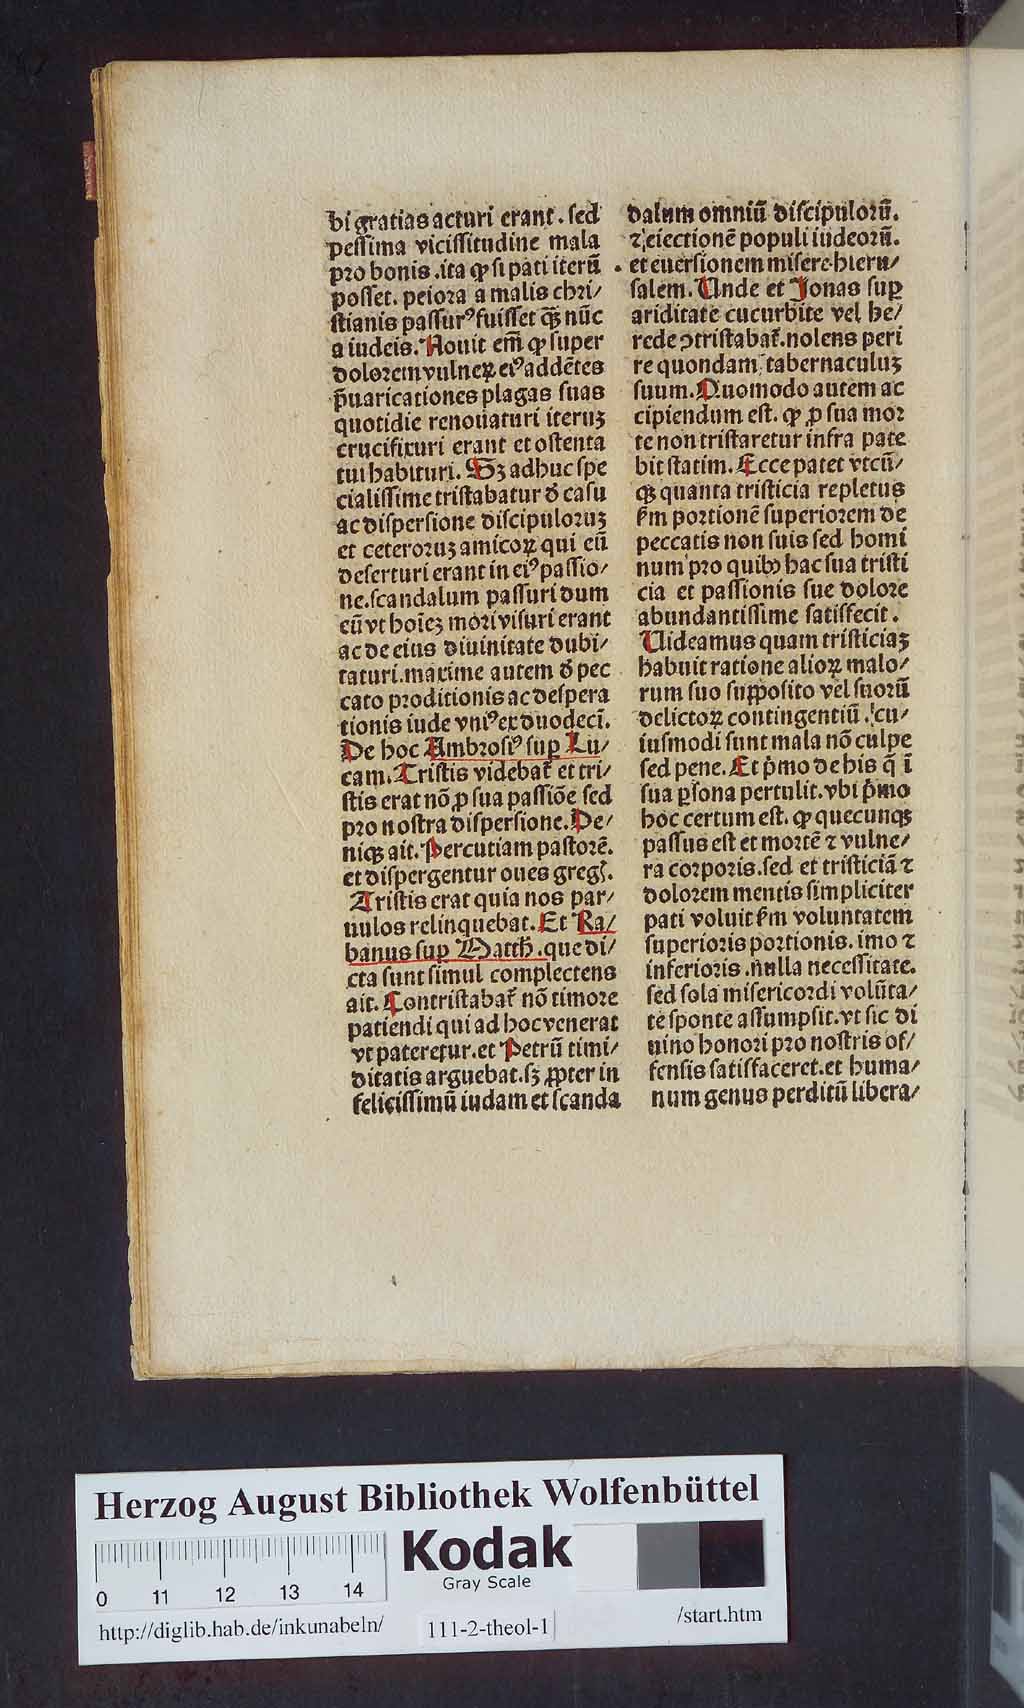 bi gratias acturi erant. sed
pessima vicissitudine mala
pro bonis .ita ꝙ si pati iterū
posset. peiora a malis chri/
stianis passurꝰ fuisset qȝ̄ nūc
a iudeis. Nouit em̄ ꝙ super
dolorem vulneꝝ eiꝰ addētes
p̄uaricationes plagas suas
quotidie renouaturi iteruȝ
crucifixuri erant et ostenta
tui habituri. Sȝ adhuc spe
cialissime tristabatur ð casu
ac dispersione discipuloruȝ
et ceteroruȝ amicoꝝ qui eū
deserturi erant in eiꝰ passio/
ne.scandalum passuri dum
eū vt hoīeȝ mori visuri erant
ac de eius diuinitate dubi/
taturi.maxime autem ð pec
cato proditionis ac despera
tionis iude vniꝰ ex duodecī.
De hoc Ambrosiꝰ suꝑ Lu/
cam. Tristis videbat᷑ et tri/
stis erat nō ꝓ sua passiōe sed
pro nostra dispersione. De/
niqȝ ait. Percutiam pastorē.
et dispergentur oues greg͛.
Tristis erat quia nos par/
uulos relinquebat. Et Ra/
banus suꝑ Matth̄ .que di/
cta sunt simul complectens
ait. Contristabat᷑ nō timore
patiendi qui ad hoc venerat
vt pateretur.et Petrū timi/
ditatis arguebat.sȝ ꝓpter in
felicissimū iudam et scanda
dalum omniū discipulorū.
⁊ eiectionē populi iudeorū.
et euersionem misere hieru/
salem. Unde et Jonas suꝑ
ariditate cucurbite vel he/
rede ꝯtristabat᷑.nolens peri
re quondam tabernaculuȝ
suum. Quomodo autem ac
cipiendum est. ꝙ ꝓ sua mor
te non tristaretur infra pate
bit statim. Ecce patet vtcū/
qȝ quanta tristicia repletus
ẜm portionē superiorem de
peccatis non suis sed homi
num pro quibȝ hac sua tristi
cia et passionis sue dolore
abundantissime satisfecit.
Uideamus quam tristiciaȝ
habuit ratione alioꝝ malo/
rum suo supposito vel suorū
delictoꝝ contingentiū .cu/
iusmodi sunt mala nō culpe
sed pene. Et p̄mo de his q̄ ī
sua ꝑsona pertulit.vbi p̄mo
hoc certum est. ꝙ quecunqȝ
passus est et mortē ⁊ vulne/
ra corporis.sed et tristiciā ⁊
dolorem mentis simpliciter
pati voluit ẜm voluntatem
superioris portionis. imo ⁊
inferioris .nulla necessitate.
sed sola misericordi volūta/
te sponte assumpsit.vt sic di
uino honori pro nostris of/
fensis satisfaceret.et huma/
num genus perditū libera/
Herzog August Bibliothek Wolfenbüttel
0 11 12 13 14
Kodak
Gray Scale
http://diglib.hab.de/inkunabeln/
111-2-theol-1
/start.htm